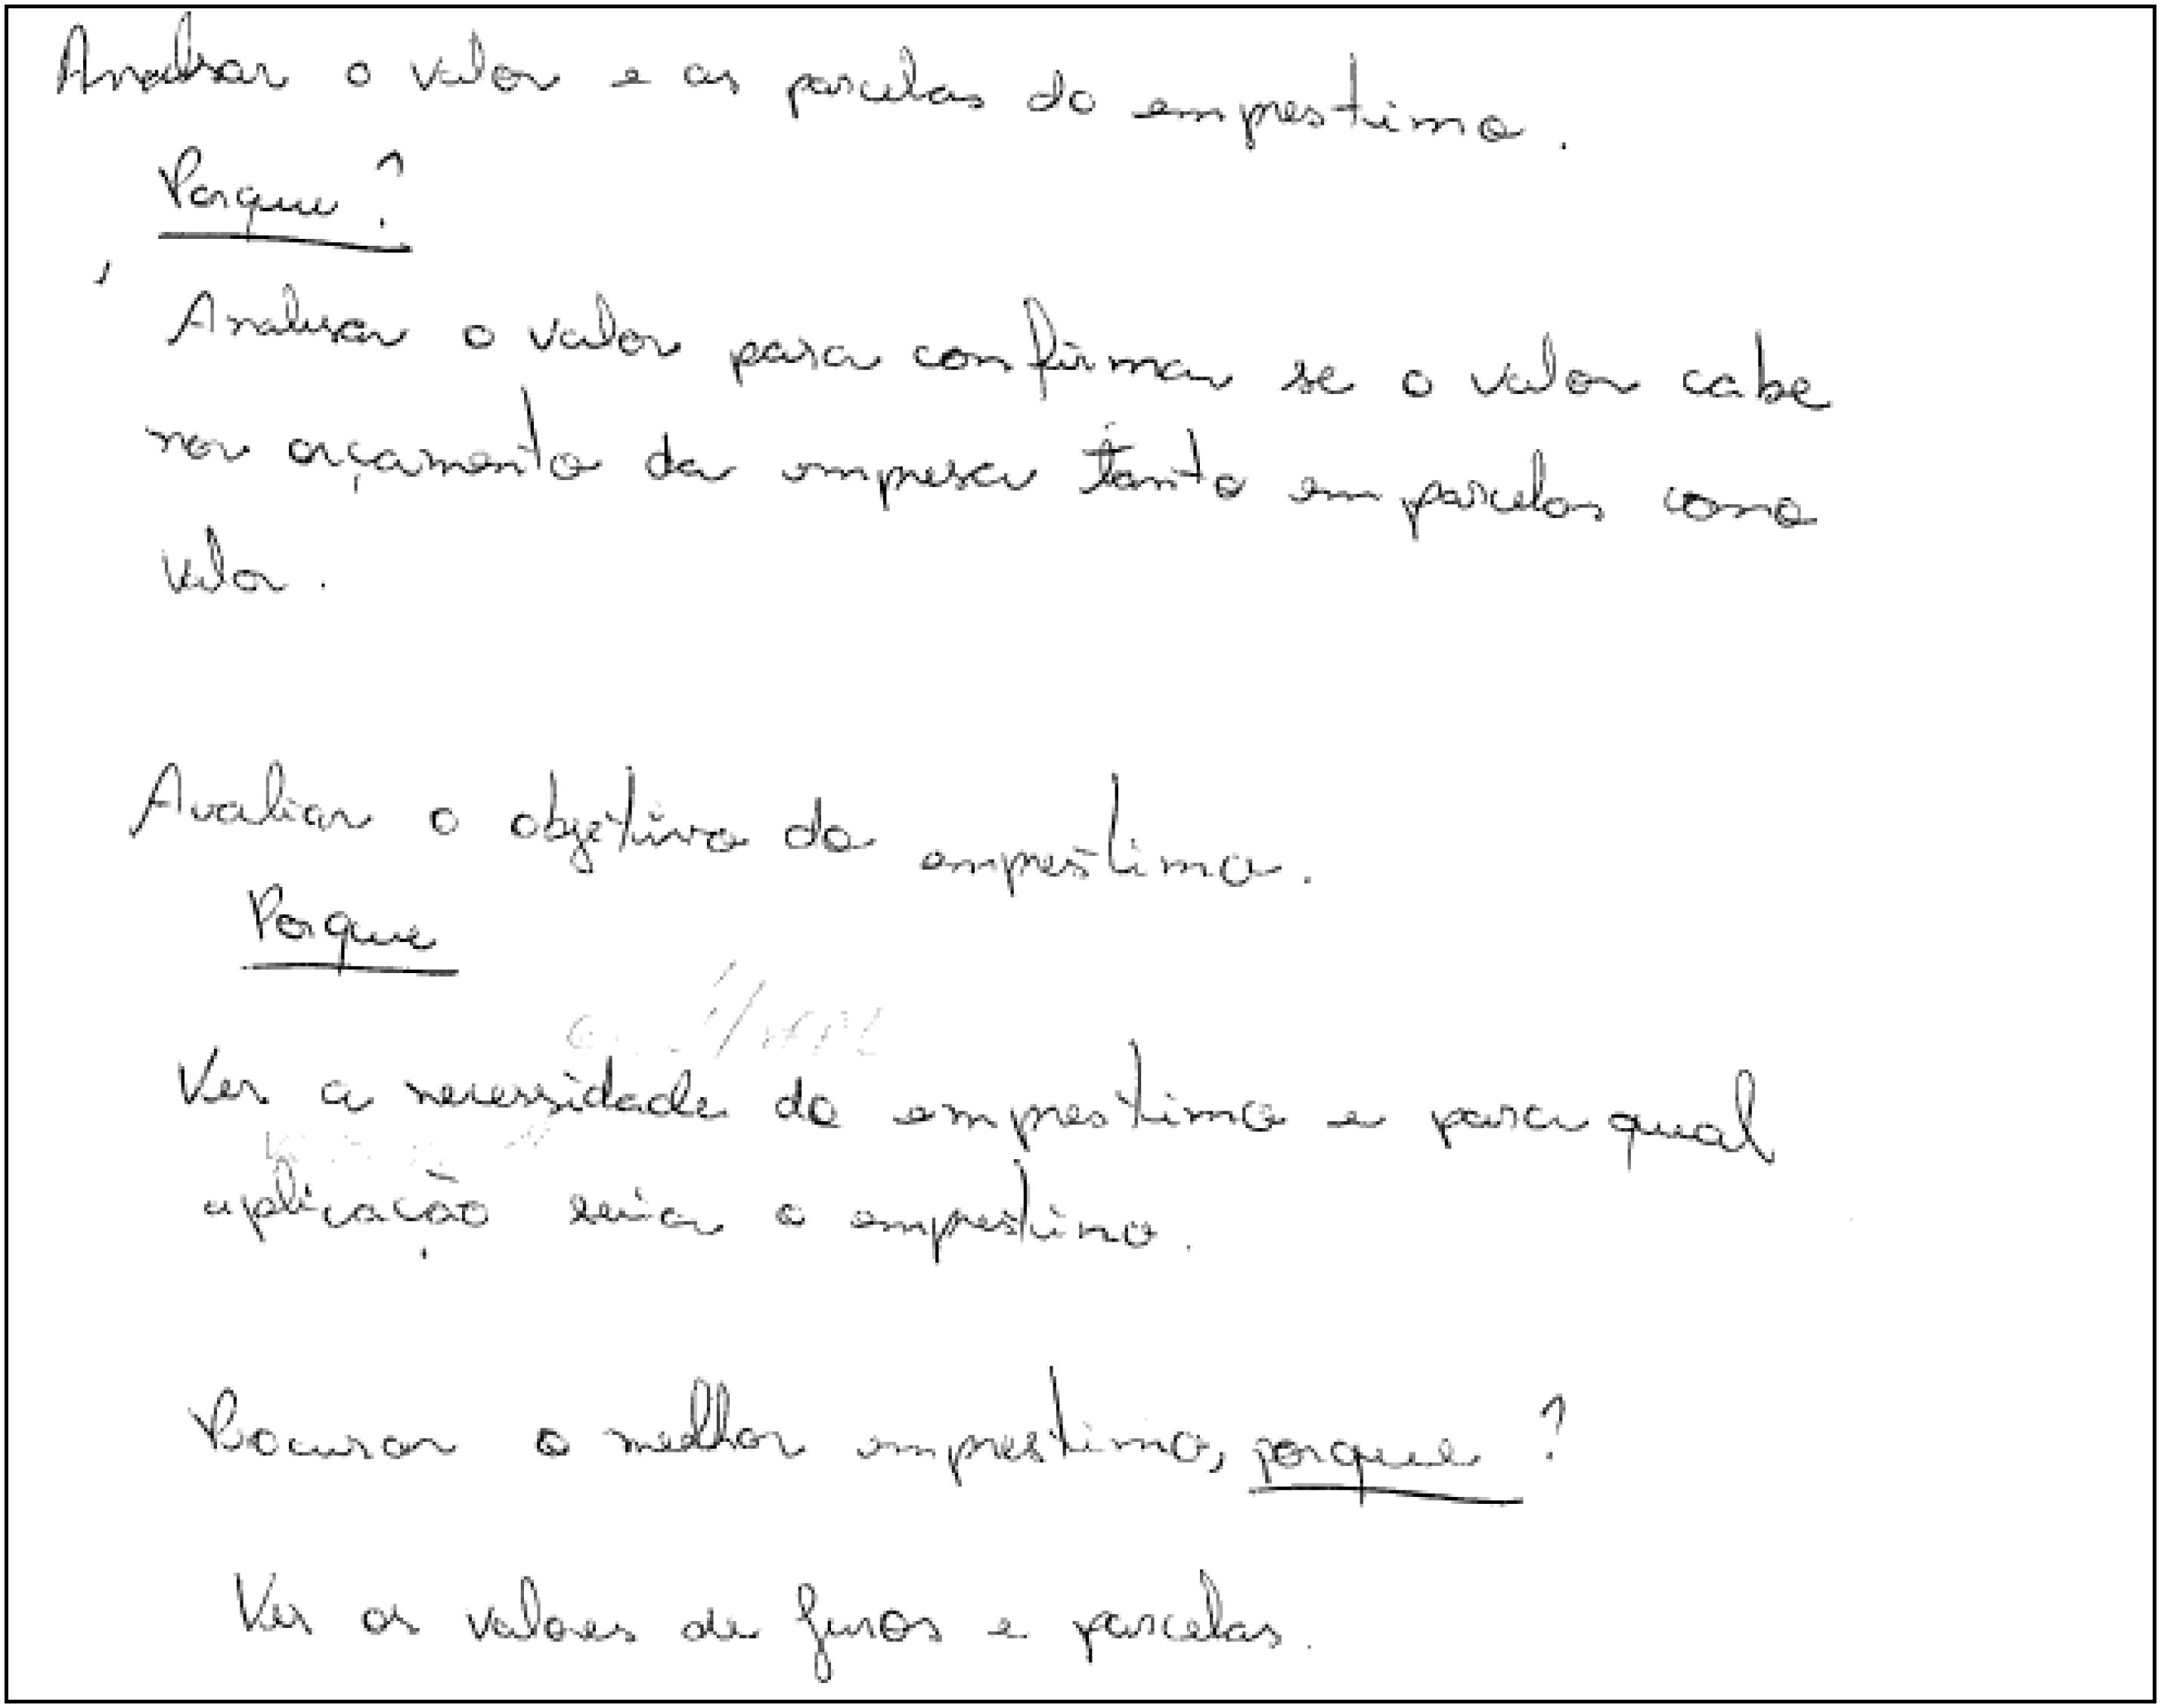 Analisar o valor e as parcelas do emprestimo.
Porque?
Analisar o valor para confirmar se o valor cabe
no orçamento da empresa tanto em parcelas como
valor.
Avaliar o objetivo do emprestimo.
Porque
Ver a necessidade do emprestimo e para qual
aplicação seria o emprestimo.
Procurar o melhor emprestimo, porque?
Ver os valores de juros e parcelas.